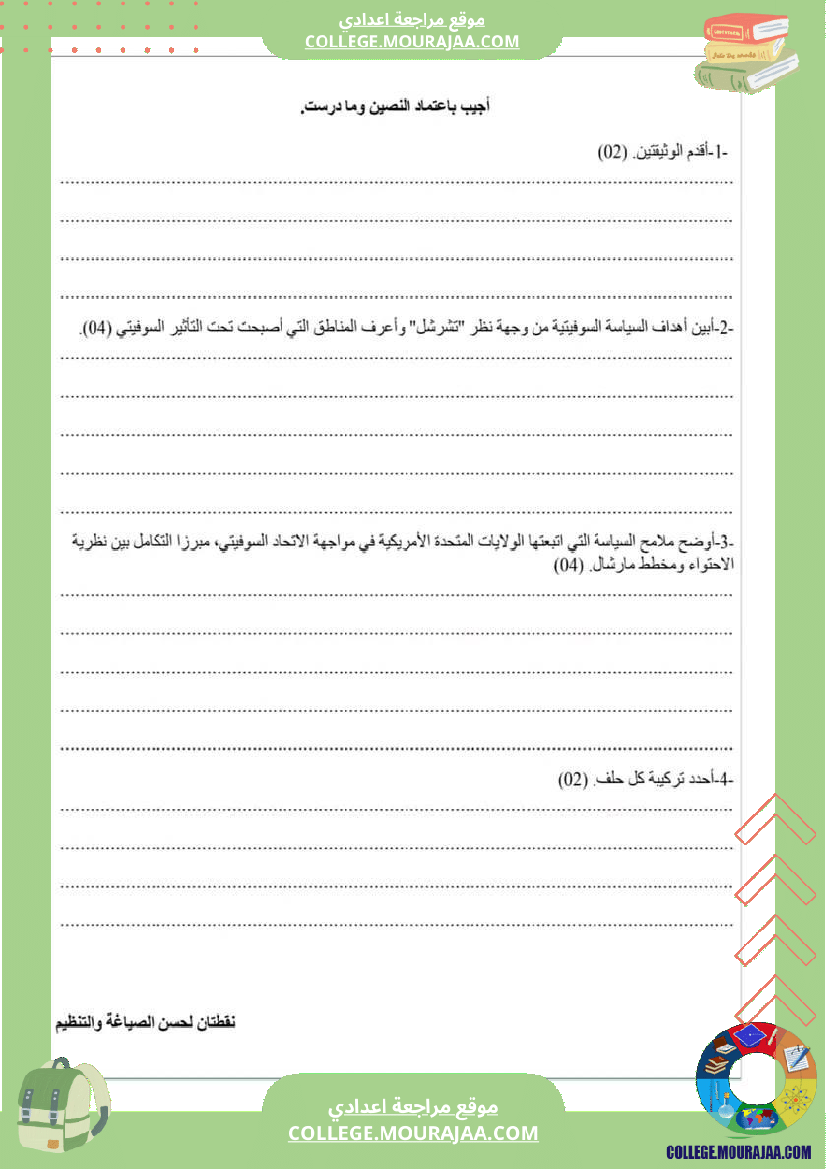 موقع مراجعة اعدادي
COLLEGE.MOURAJAA.COM
أجيب باعتماد النصين وما درست.
-1-أقدم الوثيقتين. (02)
-2-أبين أهداف السياسة السوفيتية من وجهة نظر "تشرشل" وأعرف المناطق التي أصبحت تحت التأثير السوفيتي (04).
-3-أوضح ملامح السياسة التي اتبعتها الولايات المتحدة الأمريكية في مواجهة الاتحاد السوفيتي، مبرزا التكامل بين نظرية
الاحتواء ومخطط مارشال. (04)
-4-أحدد تركيبة كل حلف. (02)
نقطتان لحسن الصياغة والتنظيم
موقع مراجعة اعدادي
COLLEGE.MOURAJAA.COM
COLLEGE.MOURAJAA.COM